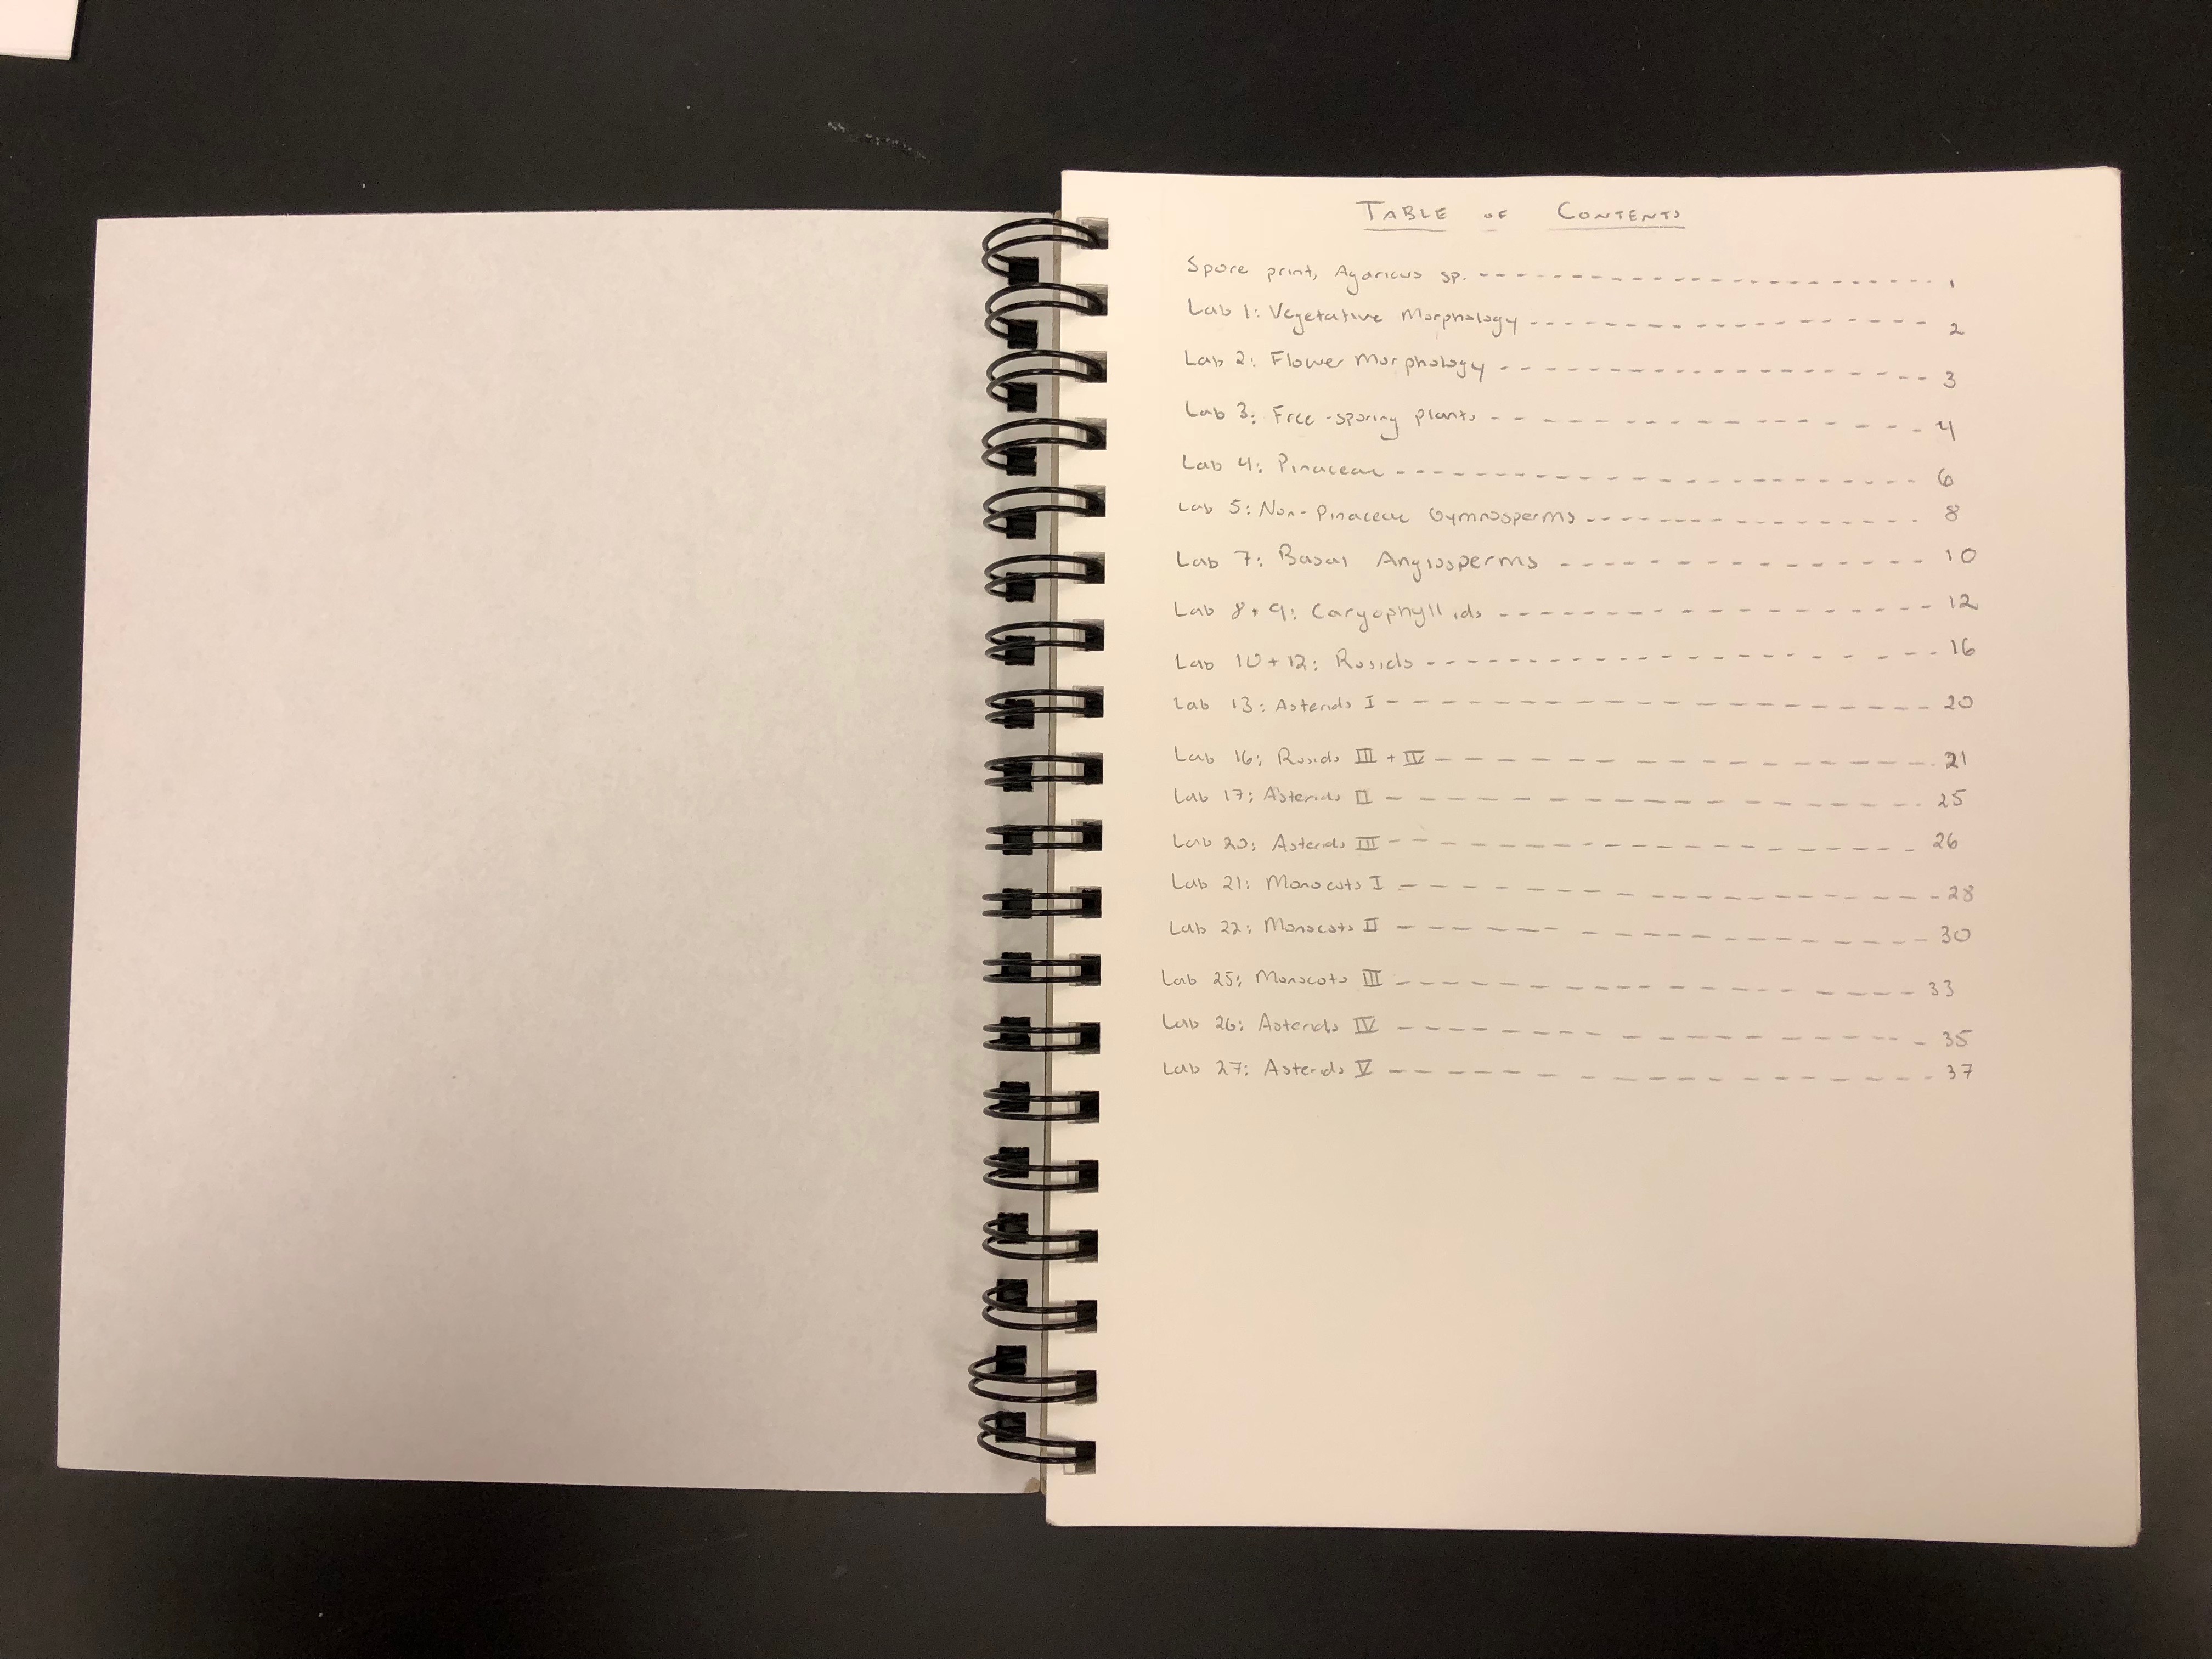 TABLE OF CONTENTS
Spore print, Agaricus sp. - - - - - - - - - - - - - - - - - - - - - - 1
Lab 1: Vegetative Morphology - - - - - - - - - - - - - - - - - - 2
Lab 2: Flower Morphology - - - - - - - - - - - - - - - - - - - - 3
Lab 3: Free-sporing plants - - - - - - - - - - - - - - - - - - 4
Lab 4: Pinaceae - - - - - - - - - - - - - - - - - - - - - - - - 6
Lab 5: Non-Pinaceae Gymnosperms - - - - - - - - - - - - - - - 8
Lab 7: Basal Angiosperms - - - - - - - - - - - - - - - 10
Lab 8+9: Caryophyllids - - - - - - - - - - - - - - - - - - - 12
Lab 10+12: Rosids - - - - - - - - - - - - - - - - - - - - - 16
Lab 13: Asterids I - - - - - - - - - - - - - - - - - - - - 20
Lab 16: Rosids III + IV - - - - - - - - - - - - - - - - - 21
Lab 17: Asterids II - - - - - - - - - - - - - - - - - - - 25
Lab 20: Asterids III - - - - - - - - - - - - - - - - - - - 26
Lab 21: Monocots I - - - - - - - - - - - - - - - - - - - - 28
Lab 22: Monocots II - - - - - - - - - - - - - - - - - - - 30
Lab 25: Monocots III - - - - - - - - - - - - - - - - - - - 33
Lab 26: Asterids IV - - - - - - - - - - - - - - - - - - - 35
Lab 27: Asterids V - - - - - - - - - - - - - - - - - - - 37